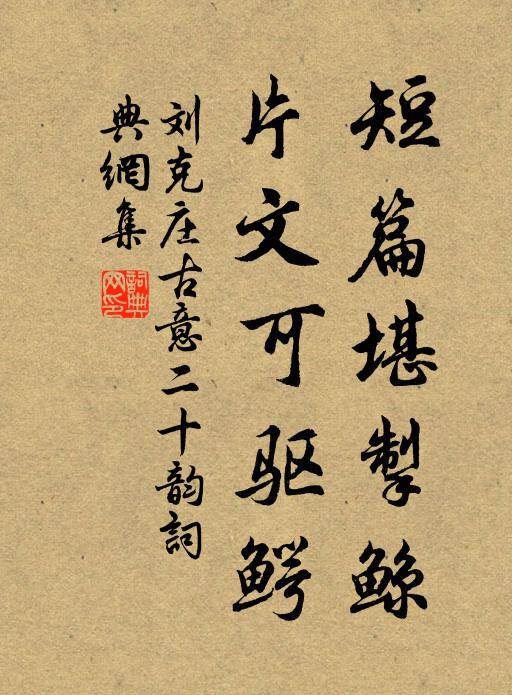 短篇堪掣鲸
片文可驱鳄
刘克庄古意二十韵詞
典網集
詞典網印